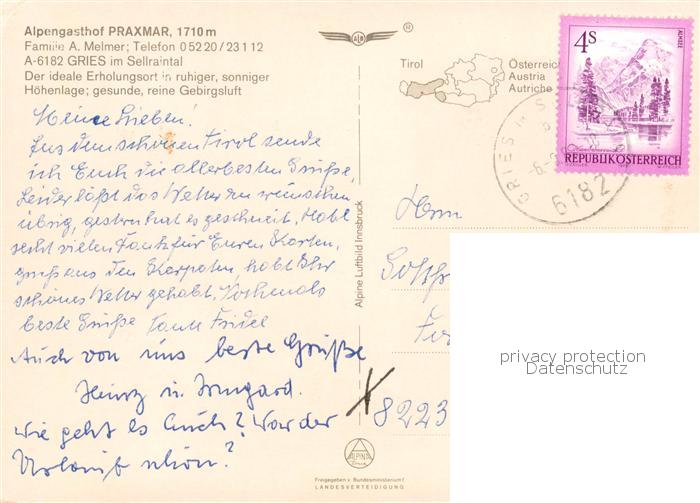 Alpengasthof PRAXMAR, 1710 m
Familie A. Melmer; Telefon 0 52 20 / 23 1 12
A-6182 GRIES im Sellraintal
Der ideale Erholungsort in ruhiger, sonniger
Höhenlage; gesunde, reine Gebirgsluft
Meine Lieben!
Aus dem schönen Tirol sende
ich Euch die allerbesten Grüße.
Leider läßt das Wetter zu wünschen
übrig, gestern hat es geschneit. Habt
recht vielen Dank für Euren Karten,
gruß aus den Karpaten, habt Ihr
schönes Wetter gehabt. Nochmals
beste Grüße Tante Friedel
Auch von uns beste Grüße
Heinz u. Irmgard.
Wie geht es Euch? War der
Urlaub schön?
Alpine Luftbild Innsbruck
ALB
®
Tirol
Österreich
Austria
Autriche
4S
ALMSEE
REPUBLIK ÖSTERREICH
GRIES
6182
Herrn
8223
privacy protection
Datenschutz
ALPINE
Freigegeben v. Bundesministerium f.
LANDESVERTEIDIGUNG